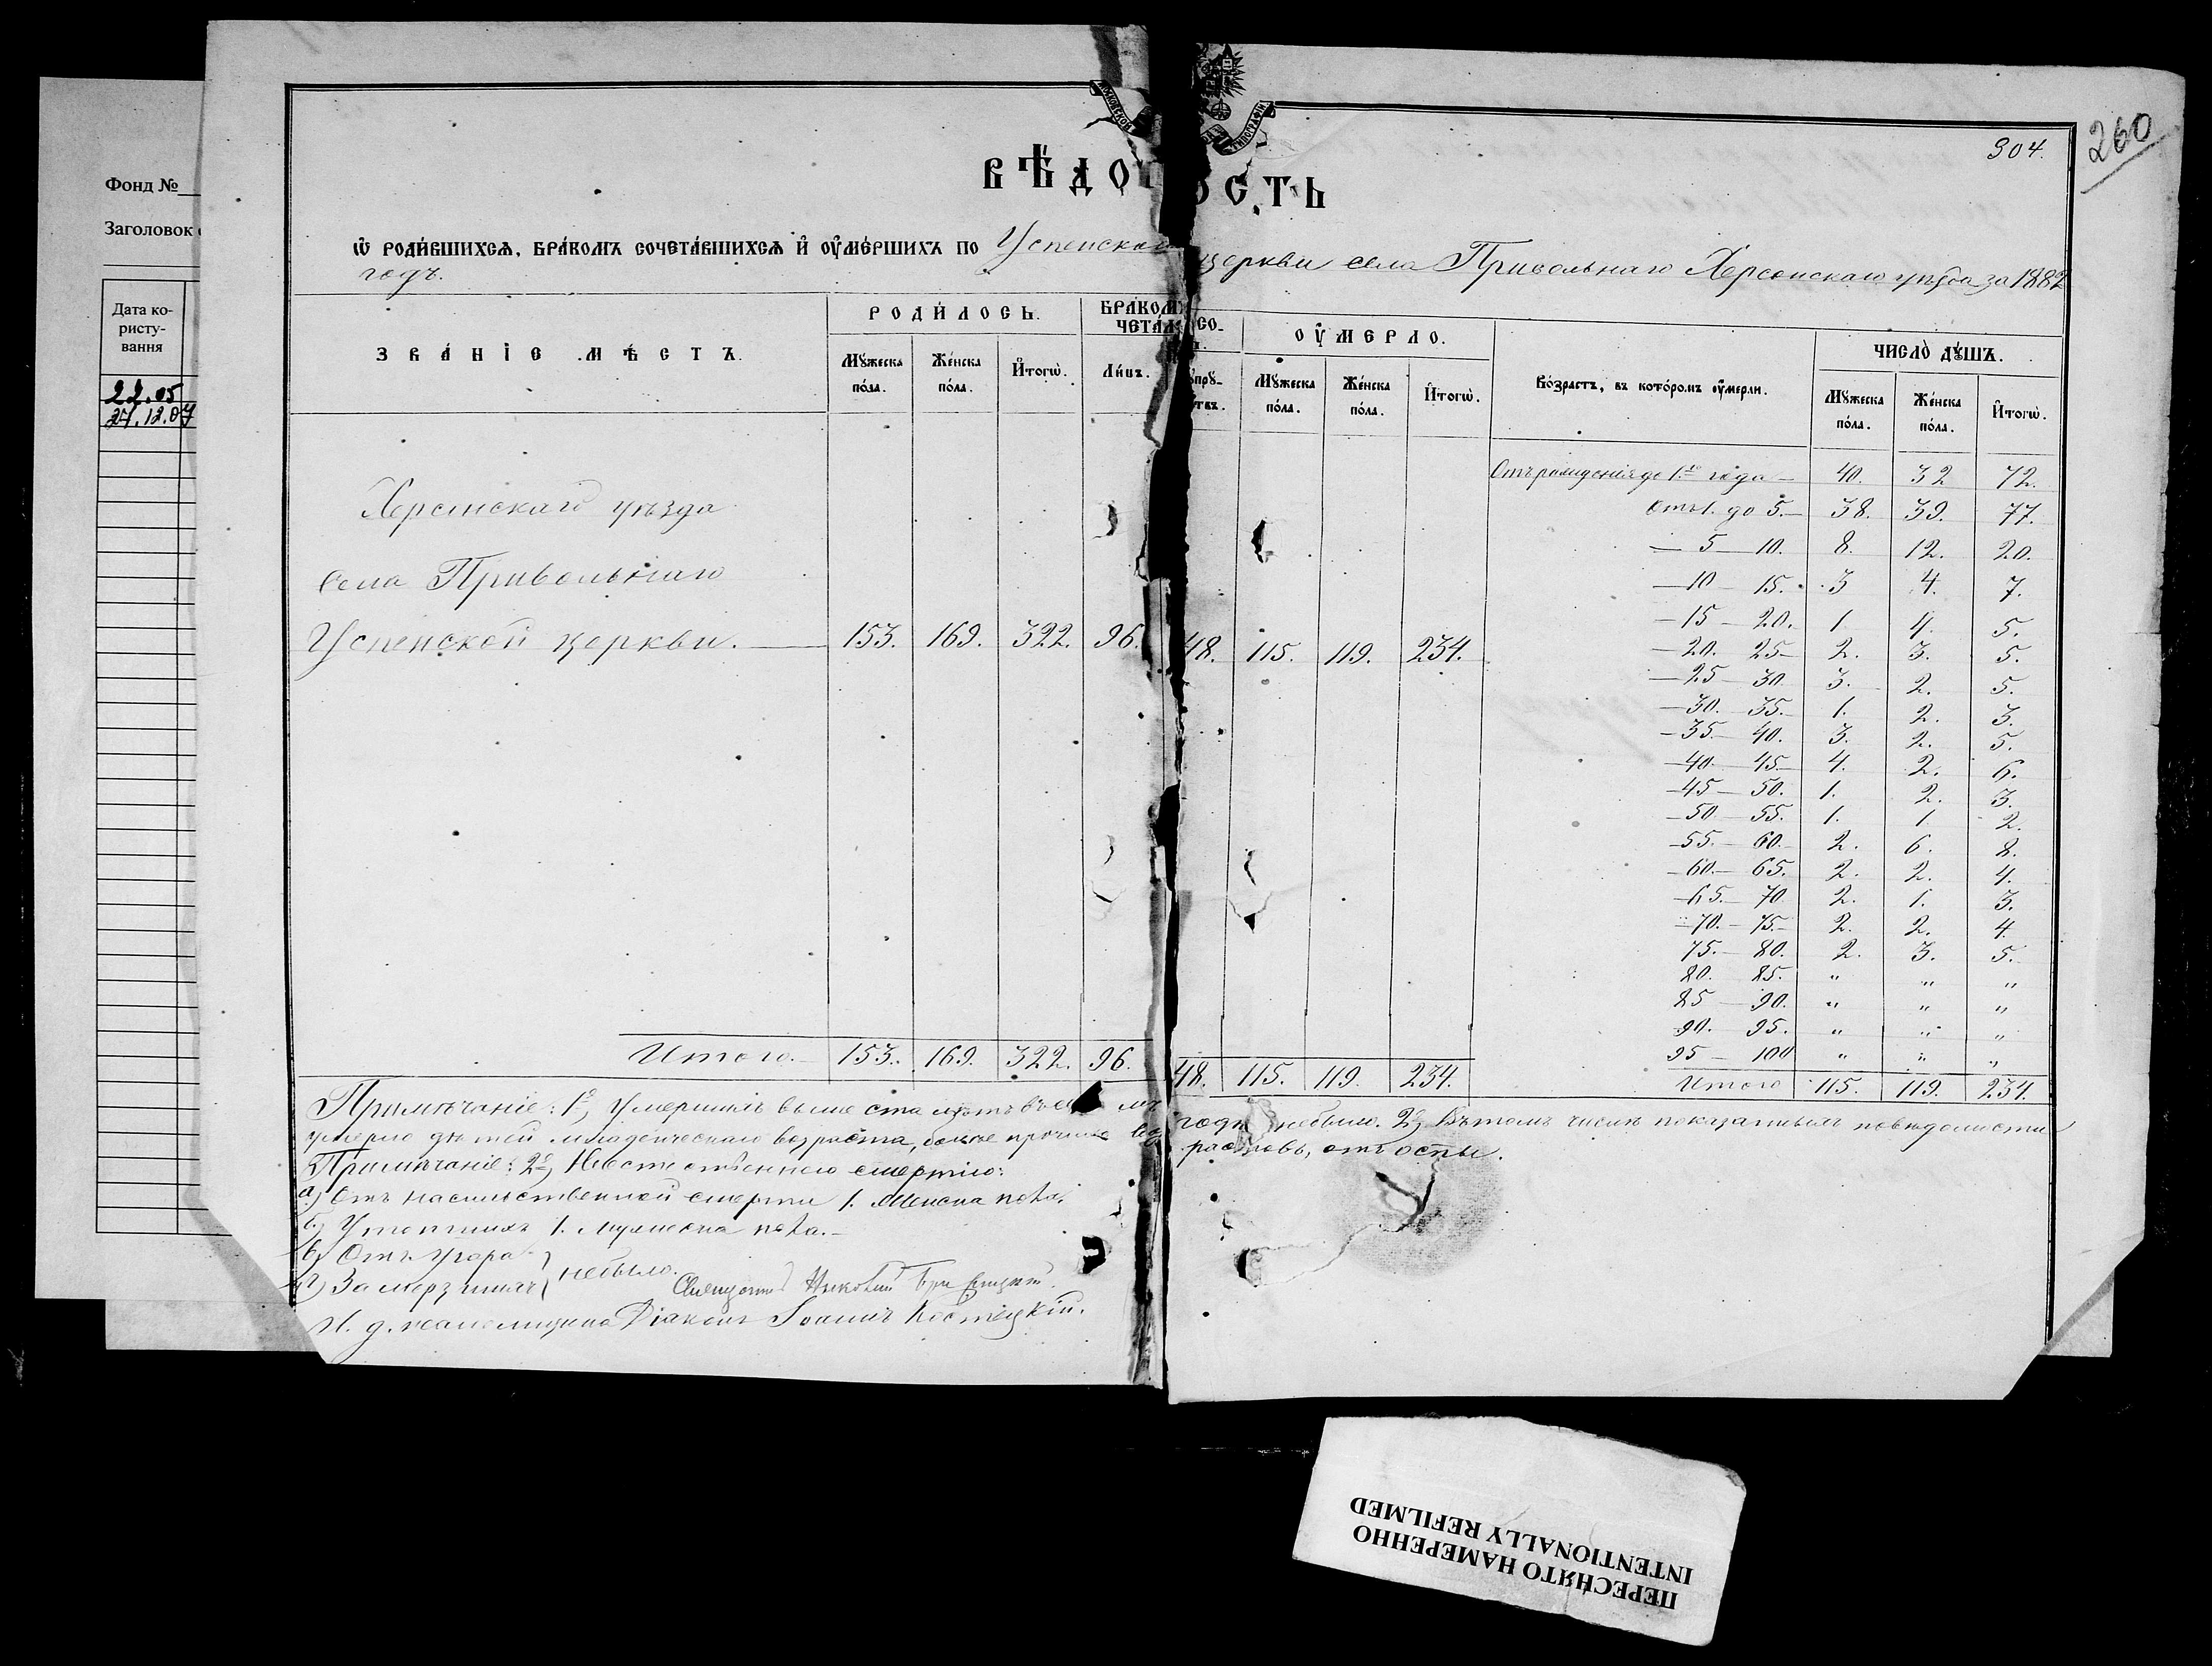 304.
260
Фонд №
Заголовок
Дата ко-
ристу-
вання
22.05
27.12.07
ВѢДОМОСТЬ
Ѡ РОДИ́ВШИХСѦ, БРА́КОМЪ СОЧЕТА́ВШИХСѦ И҆ ОУ҆МЕ́РШИХЪ ПО Успенской церкви села Привольнаго Херсонскаго уѣзда за 1882
годъ.
ЗВА́НІЕ МѢ́СТЪ.
РОДИ́ЛОСЬ.
Мꙋжеска по́ла.
Же́нска по́ла.
И҆того̀.
БРАКОМЪ СО-
ЧЕТА́Л
Ли́цъ.
ОУ҆МЕРЛО.
Мꙋжеска по́ла.
Же́нска по́ла.
И҆того̀.
Во́зрастъ, въ кото́ромъ оу҆мерли.
ЧИСЛО̀ ДꙊШЪ.
Мꙋжеска по́ла.
Же́нска по́ла.
И҆того̀.
Херсонскаго уѣзда
Села Привольнаго
Успенской церкви. — 153. 169. 322. 96. 48. 115. 119. 234.
Отъ рожденія до 1го года — 40. 32 72.
Отъ 1. до 5. — 38. 39. 77.
— 5 — 10. 8. 12. 20.
— 10 — 15. 3 4. 7.
— 15 — 20. 1. 4. 5.
— 20. 25 — 2. 3. 5.
— 25 — 30 3. 2. 5.
— 30. — 35. — 1. 2. 3.
— 35 — 40. 3. 2. 5.
— 40 — 45 — 4. 2. 6.
— 45 — 50. 1. 2. 3.
— 50 — 55. 1. 1. 2.
— 55. — 60. — 2. 6. 8.
— 60. — 65. 2. 2. 4.
— 65. — 70 2. 1. 3.
— 70. — 75. — 2. 2. 4
75. — 80. 2. 3. 5.
80. 85. " " "
85 — 90. " " "
90. 95. " " "
95 — 100 " " "
Итого 115. 119. 234.
Итого. — 153. 169. 322. 96. 48. 115. 119. 234.
Примѣчаніе: 1е, Умершихъ выше ста лѣтъ въ годѣ небыло. 2е, Въ томъ числѣ показанныхъ по вѣдомости
умерло дѣтей младенческаго возраста, болѣе прочихъ возрастовъ, отъ оспы.
Примѣчаніе: 2е, Неестественною смертію:
а) Отъ насильственной смерти 1. Женска пола.
б) Утопшихъ 1. мужеска пола. —
в) Отъ угара
г) Замерзшихъ } небыло.
Священникъ
И. д. псаломщика Діаконъ Іоаннъ Костецкій.
ПЕРЕСНЯТО НАМЕРЕННО
INTENTIONALLY REFILMED